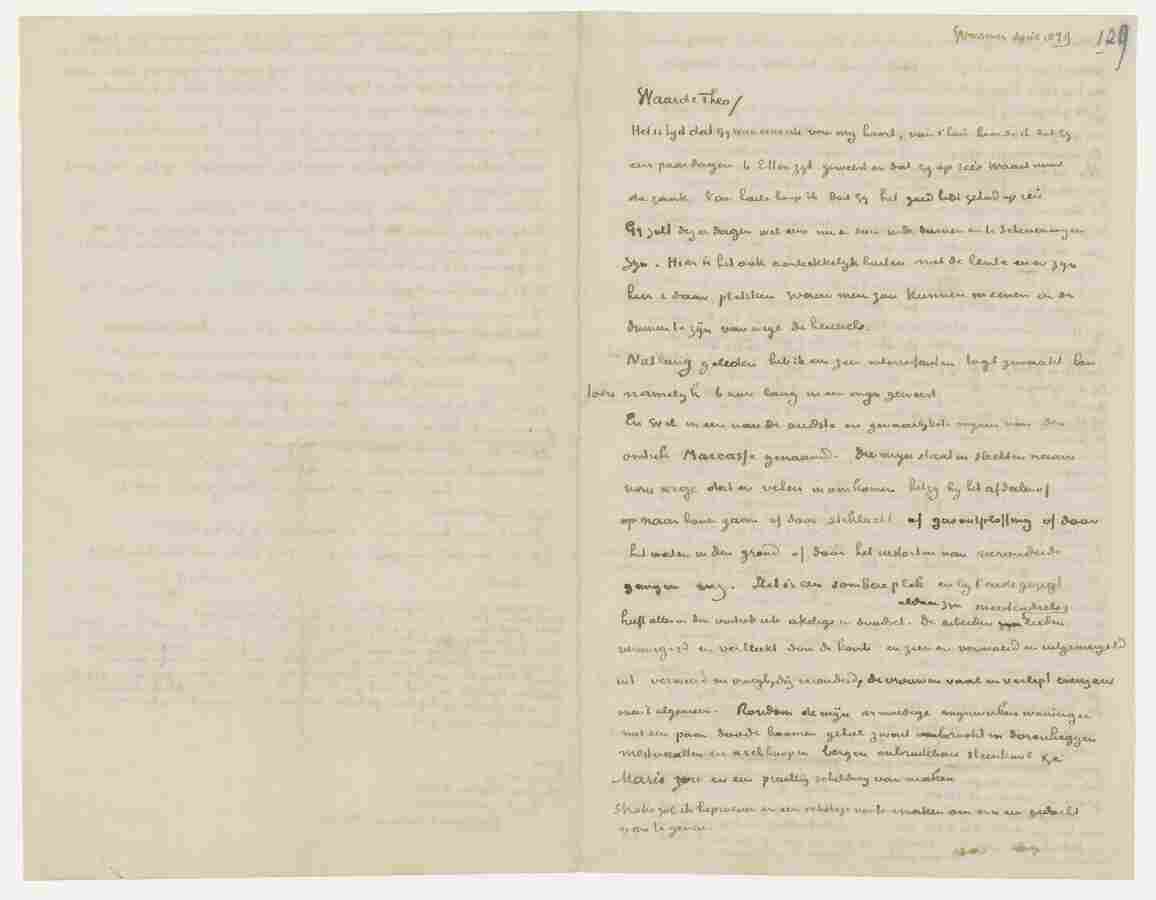 Wasmes April 1879 129
Waarde Theo/
Het is tyd dat Gy weer eens iets van my hoort, van t'huis hoorde ik dat gy
een paar dagen te Etten zyt geweest en dat gy op reis waart voor
de zaak. Van harte hoop ik dat Gy het goed hebt gehad op reis
Gy zult dezer dagen wel eens in de duinen en te Scheveningen
zyn. Hier is het ook aantrekkelyk buiten met de lente en er zyn
hier & daar plekken waar men zou kunnen meenen in de
duinen te zijn van wege de heuvels.
Niet lang geleden heb ik een zeer interessanten togt gemaakt ben
namelyk 6 uur lang in een myn geweest
En wel in een van de oudste en gevaarlykste mynen van den
omtrek Marcasse genaamd. Die mijn staat in slechten naam
van wege dat er velen in omkomen hetzy by het afdalen of
op naar boven gaan of door stiklucht of gasontploffing of door
het water in den grond of door het instorten van verouderde
gangen enz. Het is een sombere plek en by t'eerste gezigt
heeft alles in den omtrek iets akeligs en doodsch. De arbeiders aldaar zyn meestendeels lieden
vermagerd en verbleekt door de koorts en zien er vermoeid en uitgemergeld
uit verweerd en vroegtydig verouderd, de vrouwen vaal en verlept
over't algemeen. Rondom de mijn armoedige mynwerkers woningen
met een paar doode boomen geheel zwart berookt en doornheggen
mest vaalten en aschhoopen bergen onbruikbare steenkool &c
Maris zou er een prachtig schilderij van maken
Straks zal ik beproeven er een schetsje van te maken om er u een gedacht
van te geven.